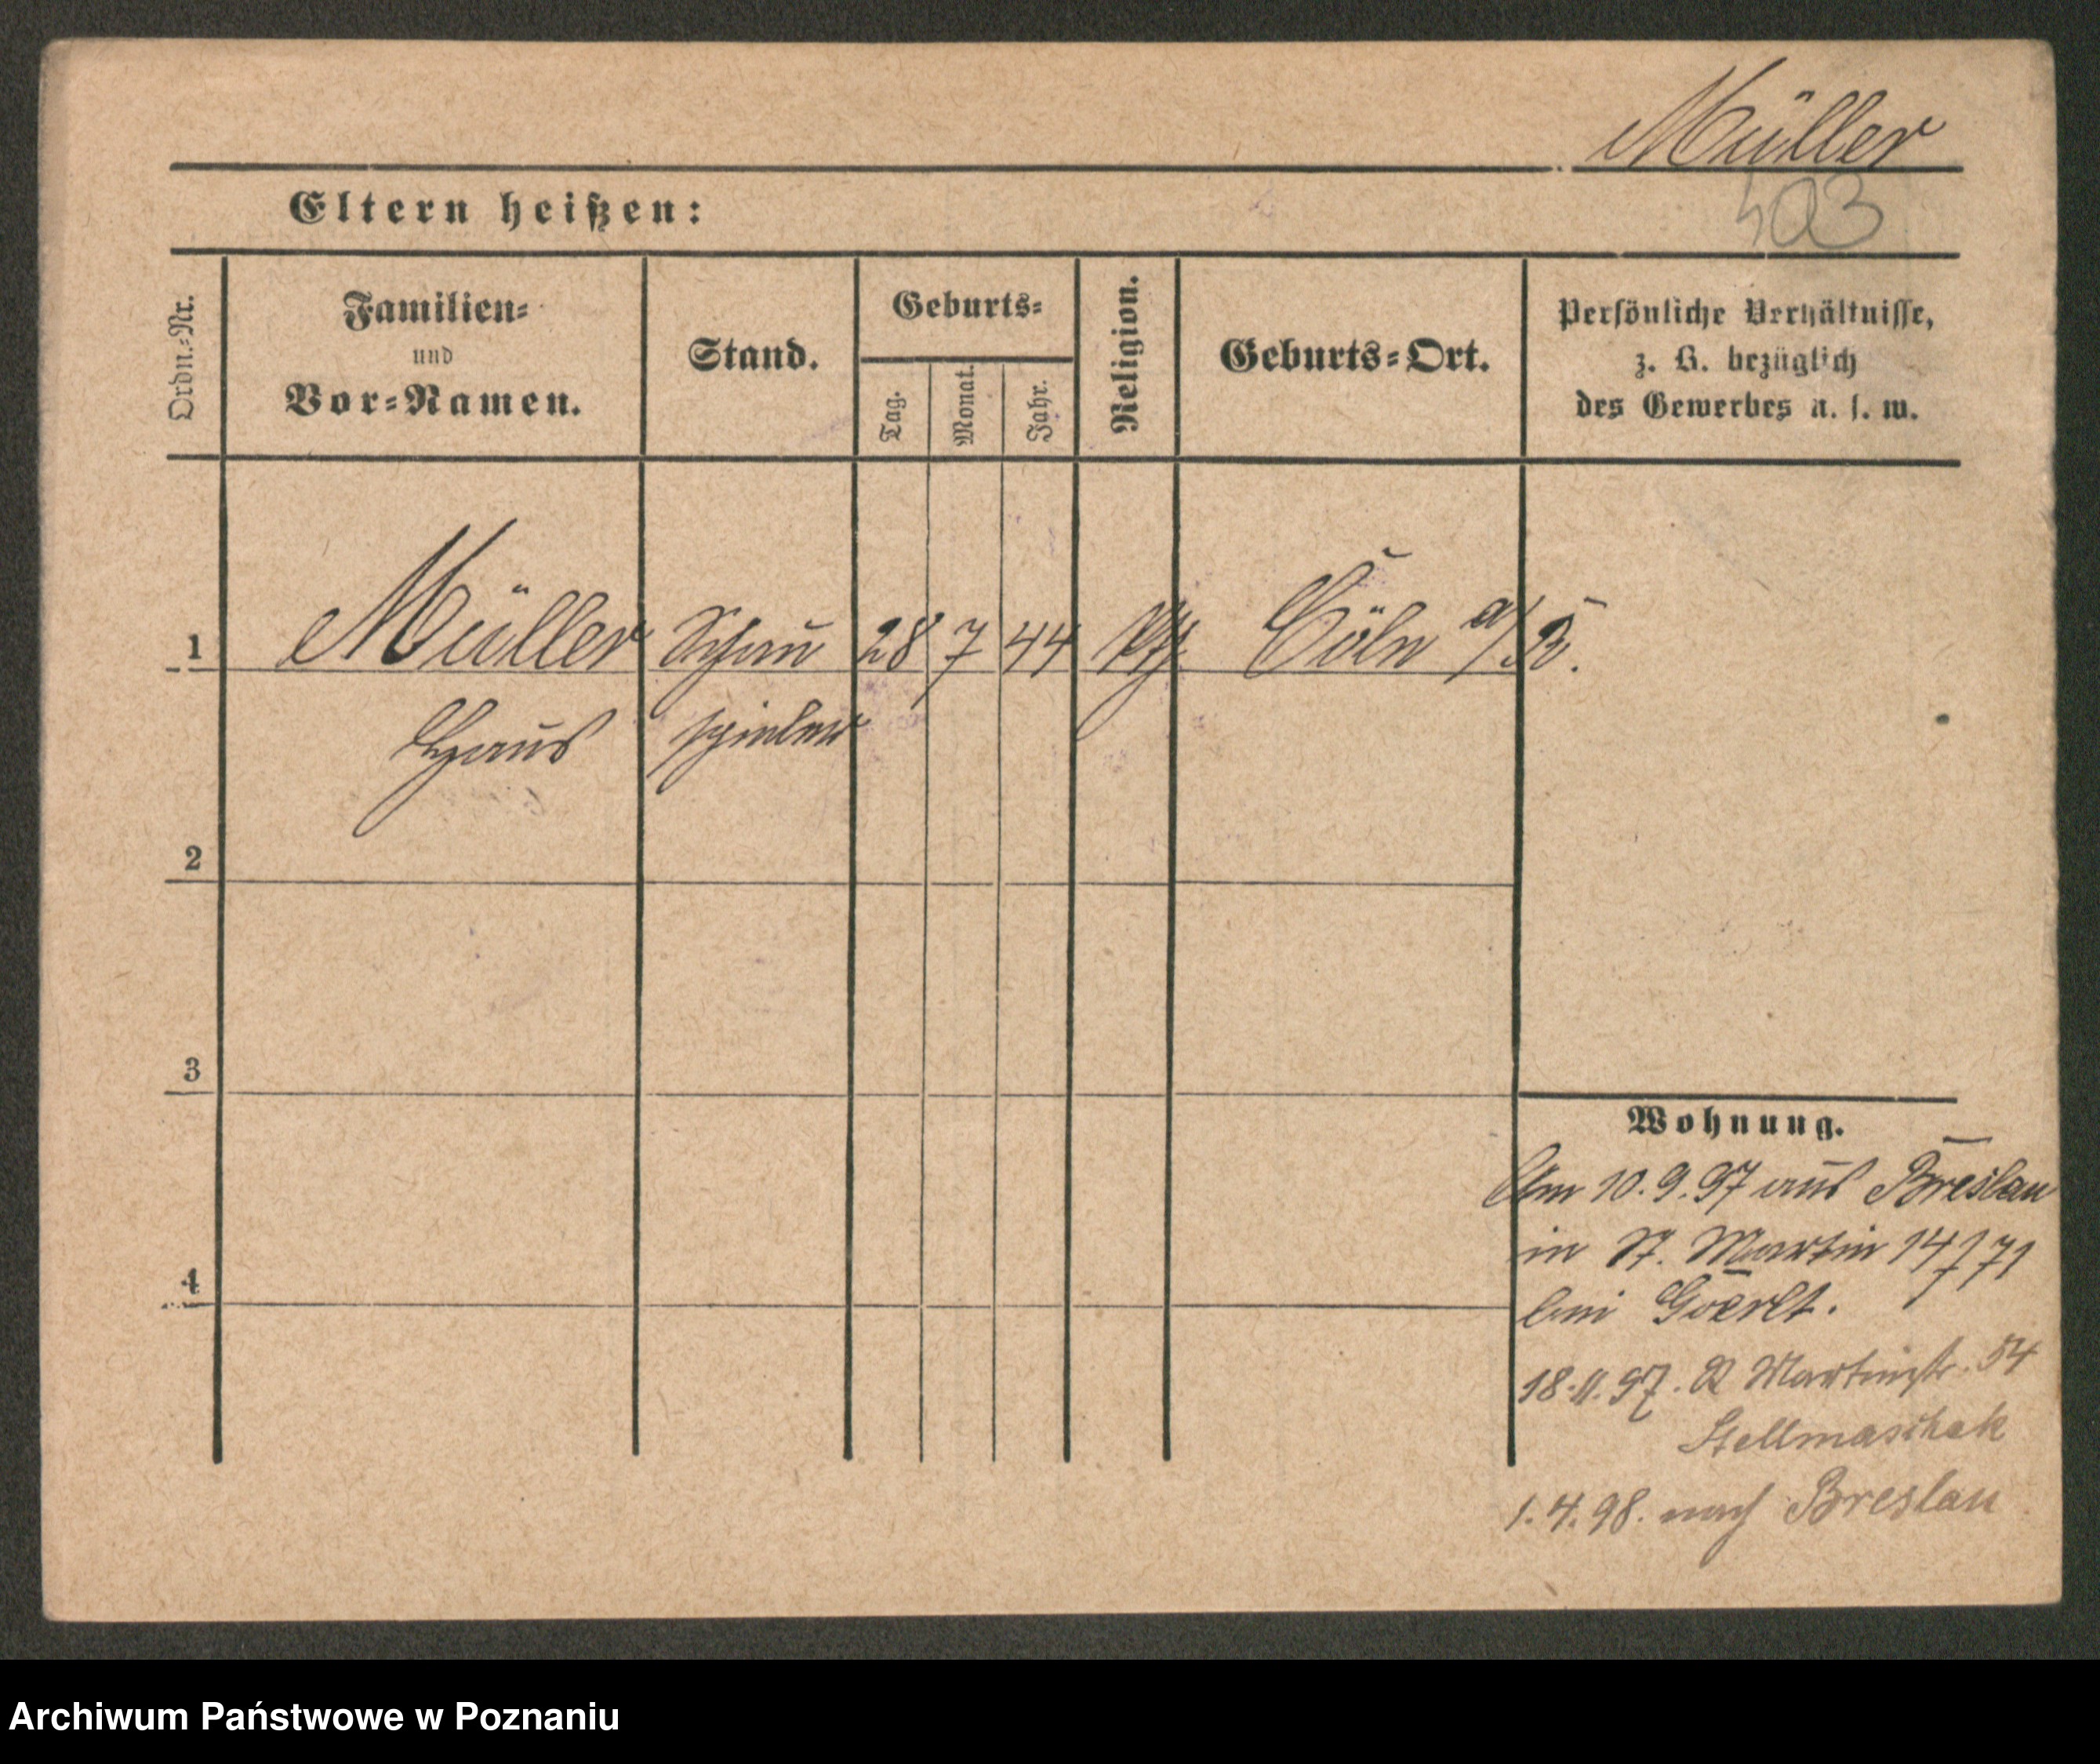 Müller
Eltern heißen:
Ordn.-Nr.
Familien-
und
Vor-Namen.
Stand.
Geburts-
Tag.
Monat.
Jahr.
Religion.
Geburts-Ort.
Persönliche Verhältnisse,
z. B. bezüglich
des Gewerbes u. s. w.
1 Müller Schau 28 7 44 Cöln a/R.
Hans spieler
2
3
4
Wohnung.
Am 10.9.97 aus Breslau
in St. Martin 14/71
bei Goerlt.
18.11.97. Martinstr. 54
Stellmaschek
1.4.98. nach Breslau
Archiwum Państwowe w Poznaniu